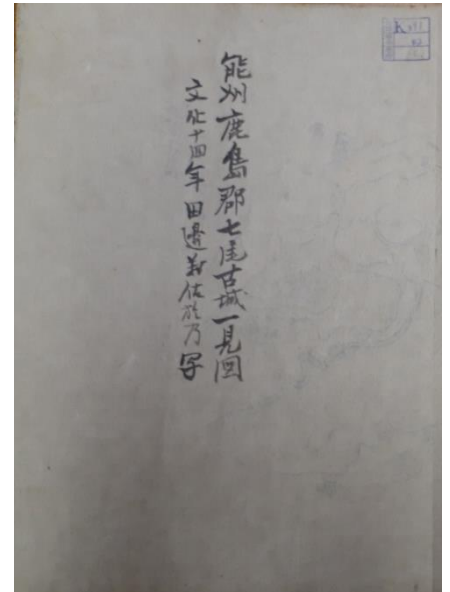 能州鹿島郡七尾古城一見図
文化十四年田邊
写